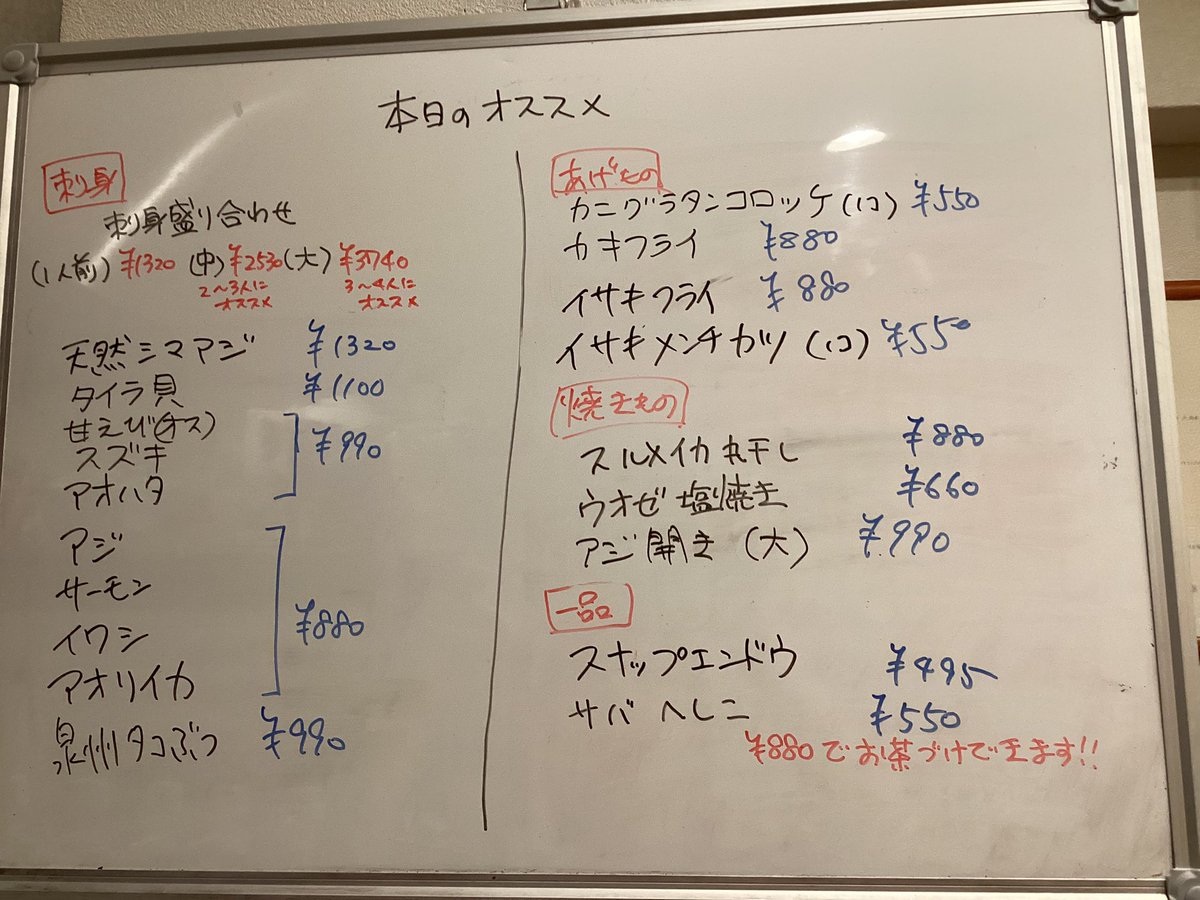 本日のオススメ
刺身
刺身盛り合わせ
(1人前) ¥1320 (中) ¥2530 (大) ¥3740
2〜3人に 3〜4人に
オススメ オススメ
天然シマアジ ¥1320
タイラ貝 ¥1100
甘えび(オス)
スズキ ¥990
アオハタ
アジ
サーモン
イワシ ¥880
アオリイカ
泉州タコぶつ ¥990
あげもの
カニグラタンコロッケ (1コ) ¥550
カキフライ ¥880
イサキフライ ¥880
イサキメンチカツ (1コ) ¥550
焼きもの
スルメイカ丸干し ¥880
ウオゼ塩焼き ¥660
アジ開き (大) ¥990
一品
スナップエンドウ ¥495
サバへしこ ¥550
¥880でお茶づけできます!!